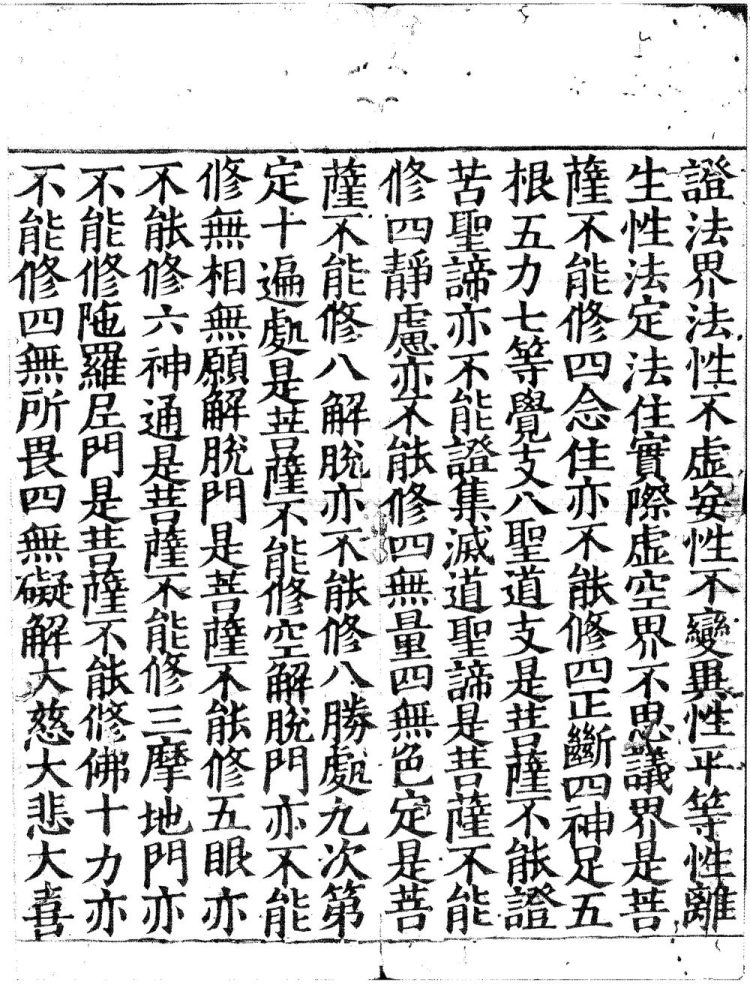 證法界法性不虛妄性不變異性平等性離
生性法定法住實際虛空界不思議界是菩
薩不能修四念住亦不能修四正斷四神足五
根五力七等覺支八聖道支是菩薩不能證
苦聖諦亦不能證集滅道聖諦是菩薩不能
修四靜慮亦不能修四無量四無色定是菩
薩不能修八解脫亦不能修八勝處九次第
定十遍處是菩薩不能修空解脫門亦不能
修無相無願解脫門是菩薩不能修五眼亦
不能修六神通是菩薩不能修三摩地門亦
不能修陁羅尼門是菩薩不能修佛十力亦
不能修四無所畏四無礙解大慈大悲大喜